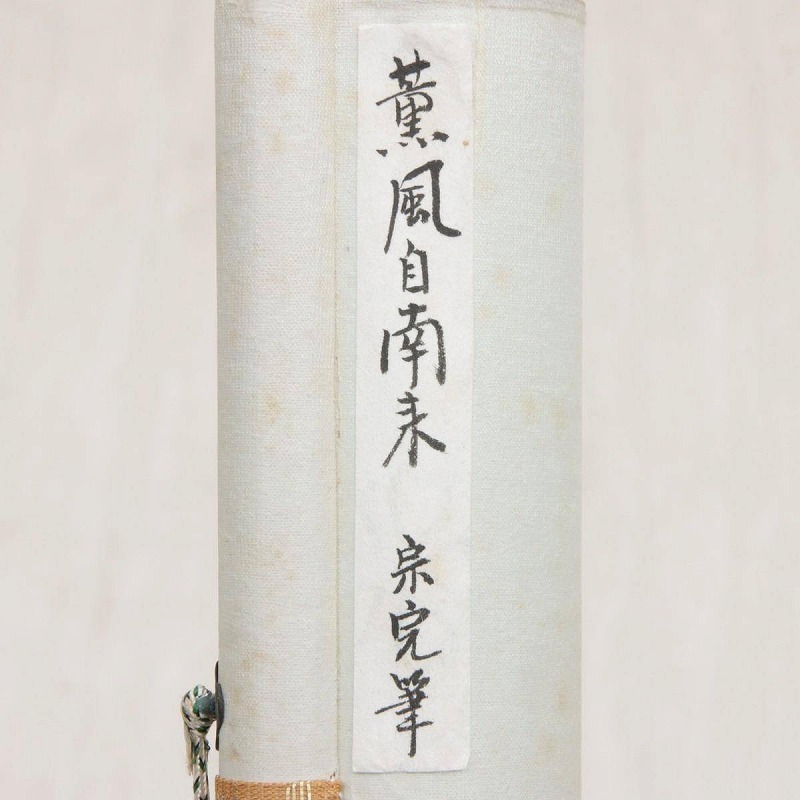 薫風自南来 宗完筆